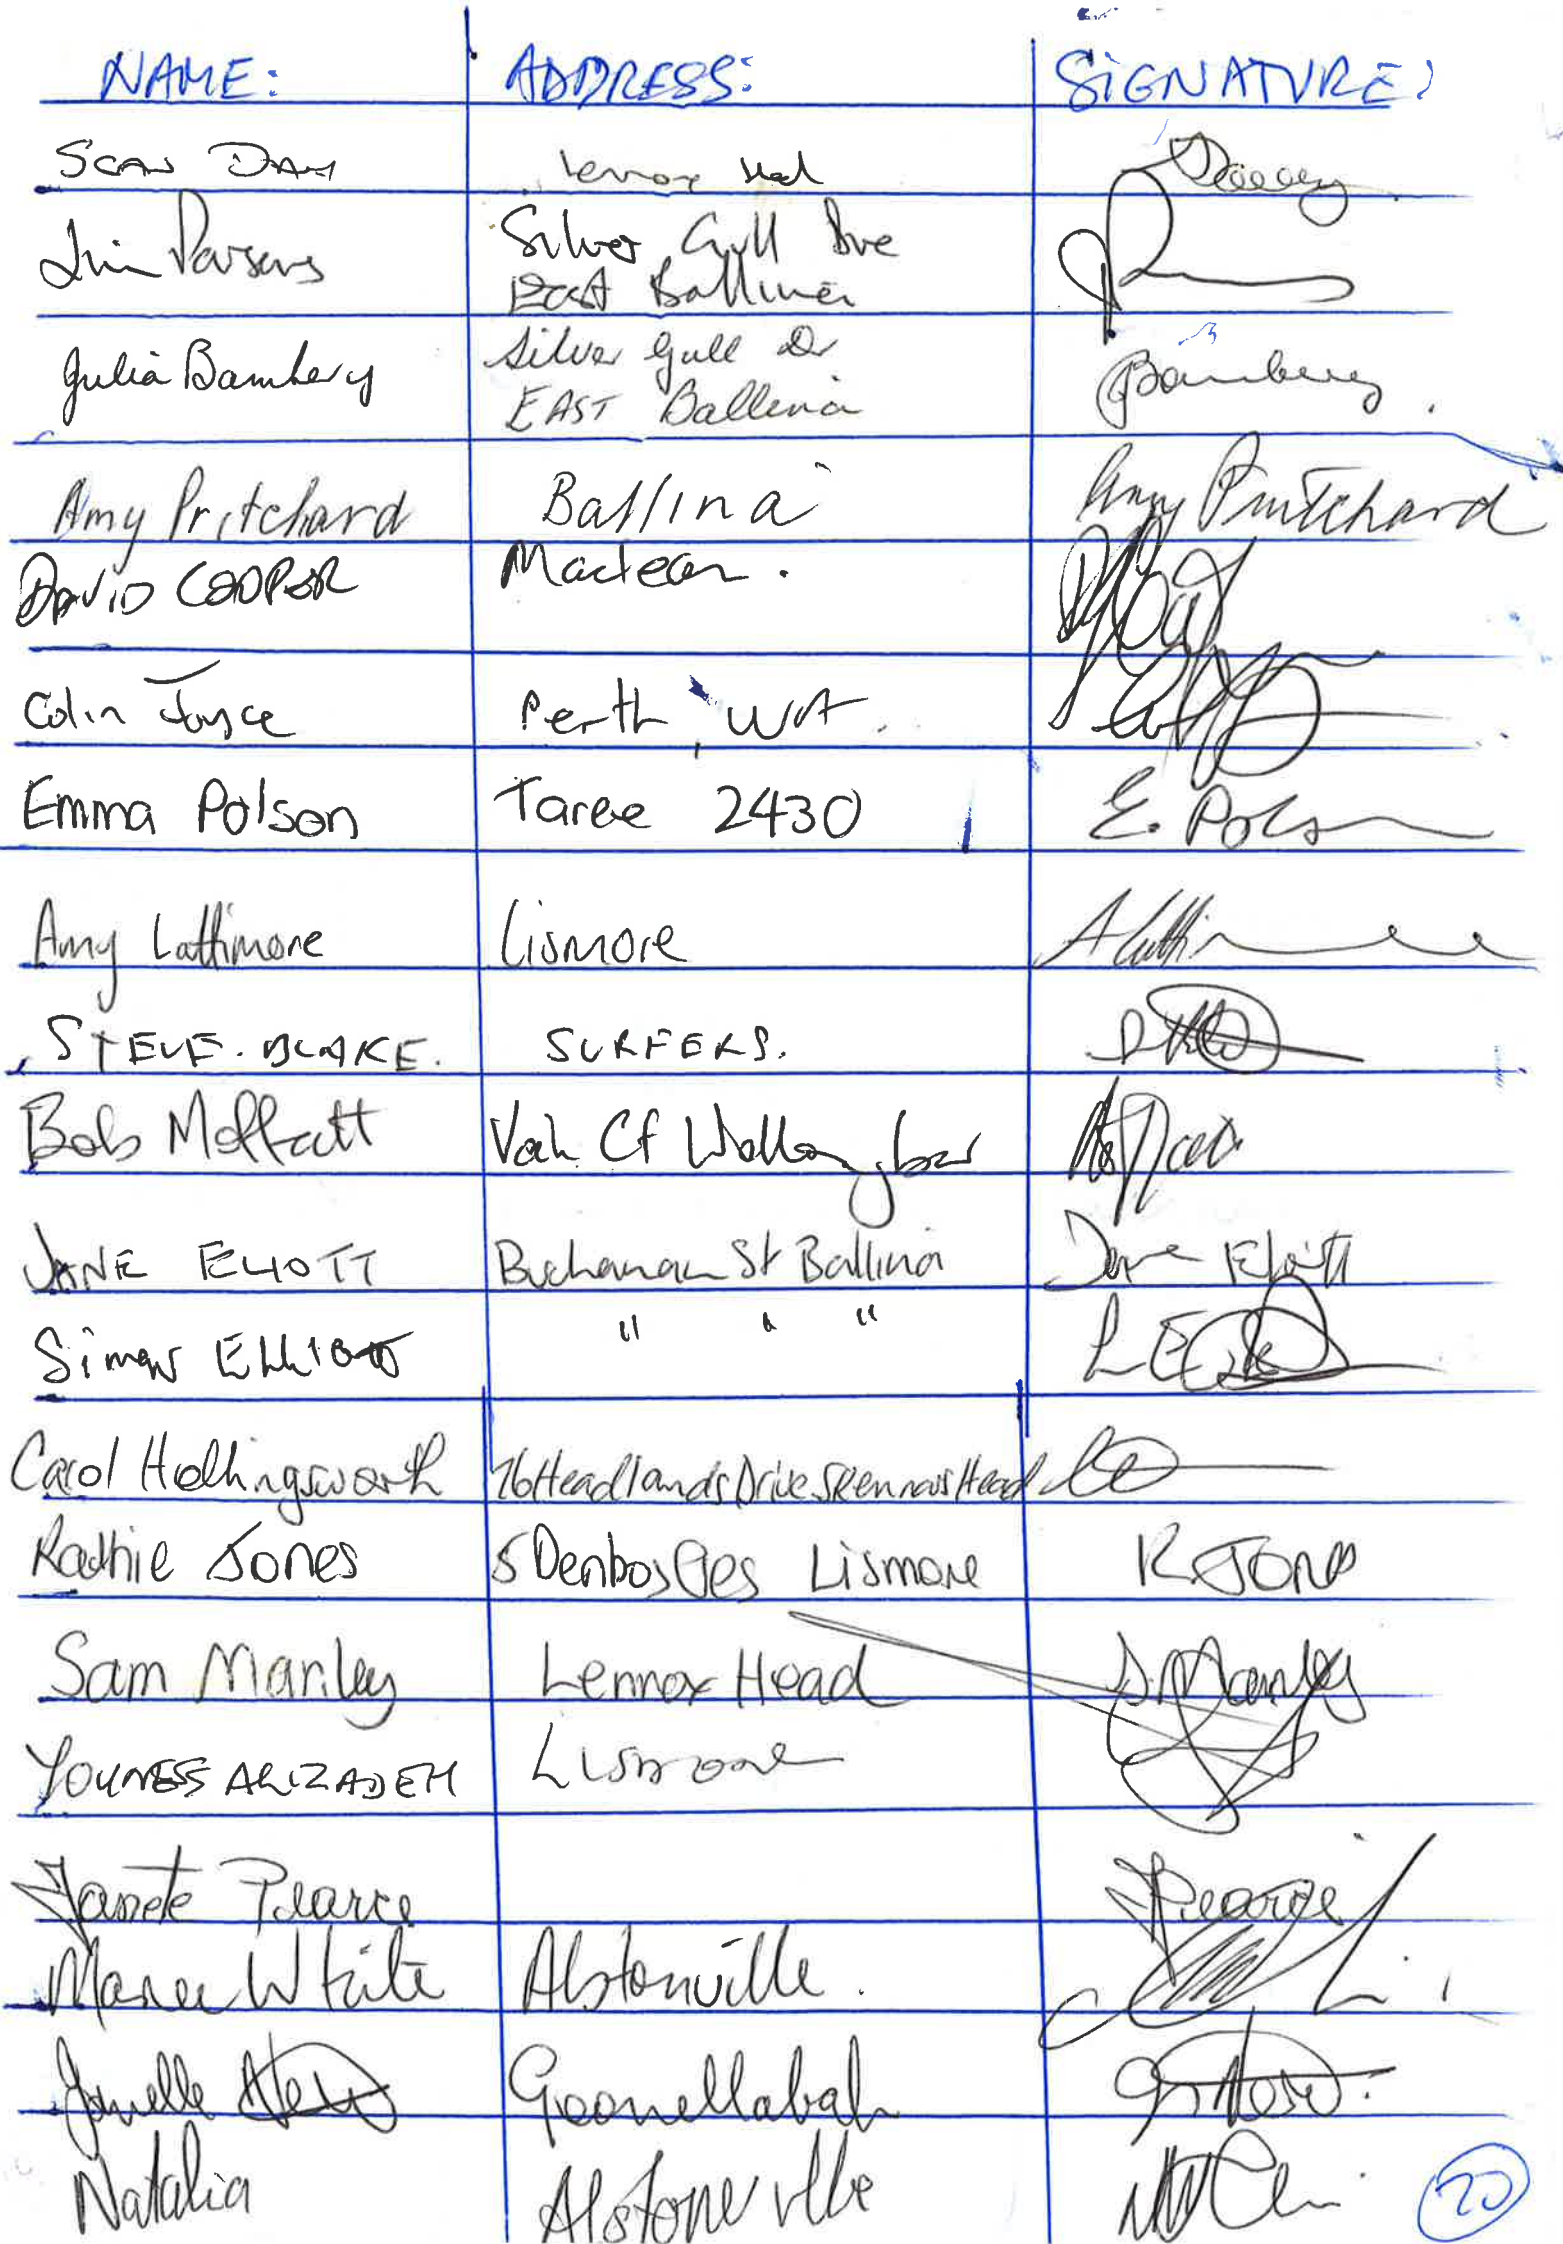 NAME: ADDRESS: SIGNATURE:
Sean DAY Lennox Head
Jim Parsons Silver Gull Dve
East Ballina
Julia Bambery Silver Gull Dr Bambery.
EAST Ballina
Amy Pritchard Ballina Amy Pritchard
DAVID COOPER Maclean.
Colin Joyce Perth, WA.
Emma Polson Taree 2430 E. Polson
Amy Lattimore Lismore A Lattimore
STEVE. BLAKE. SURFERS.
Bob Moffatt Crt Wollongbar
JANE ELIOTT Buchanan St Ballina Jane Eliott
Simon ELLIOTT " " "
Carol Hollingsworth 76 Headlands Drive Skennars Head
Kathie Jones 5 Lismore K JONES
Sam Manley Lennox Head S. Manley
YOUNESS ALIZADEH Lismore
Janete Pearce JPearce
Maree White Alstonville.
Janelle Goonellabah
Natalia Alstoneville
20